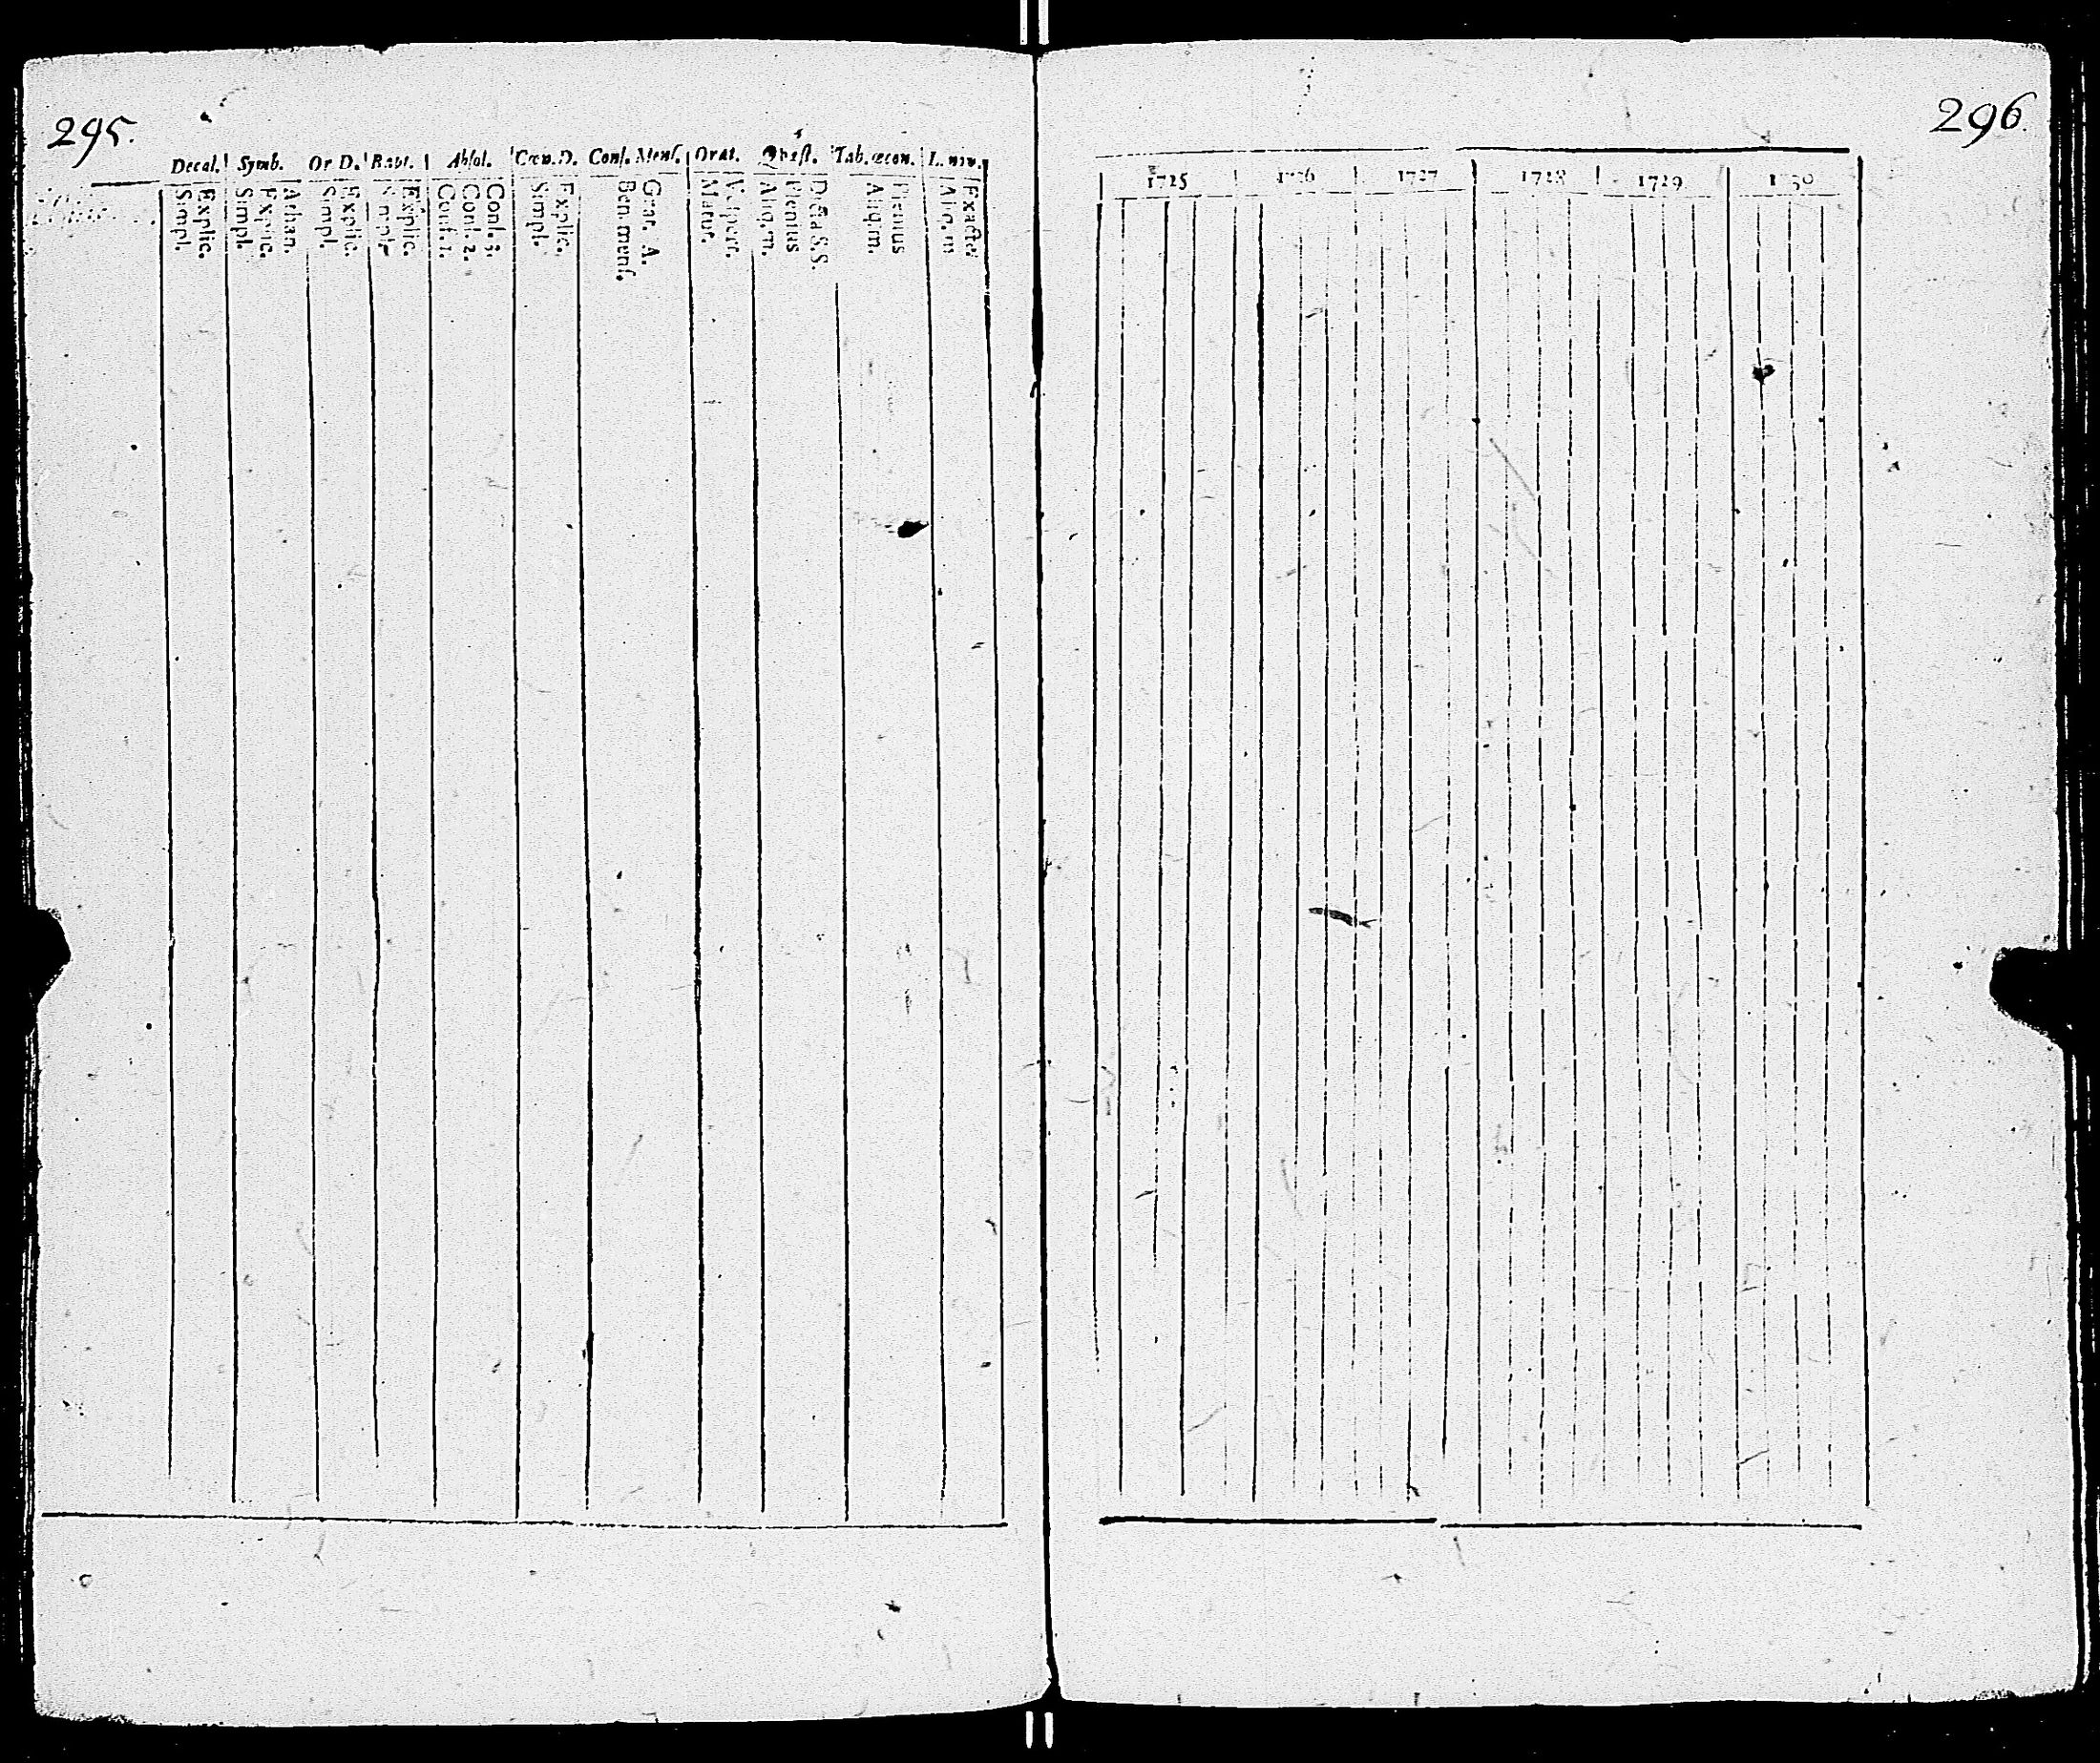 295.
296.
Decal. Symb. Or D. Bapt. Absol. Cœn. D. Conf. Mens. Orat. Qvæst. Tab. œcon.
Explic.
Simpl.
Athan.
Explic.
Simpl.
Explic.
Simpl.
Explic.
Simpl.
Conf. 3.
Conf. 2.
Conf. 1.
Explic.
Simpl.
Grat. A.
Ben. menſ.
Veſpert.
Matut.
Dicta S.S.
Plenius
Aliq. m.
Plenius
Aliq. m.
Exactè
Aliq. m
1725 1726 1727 1728 1729 1730